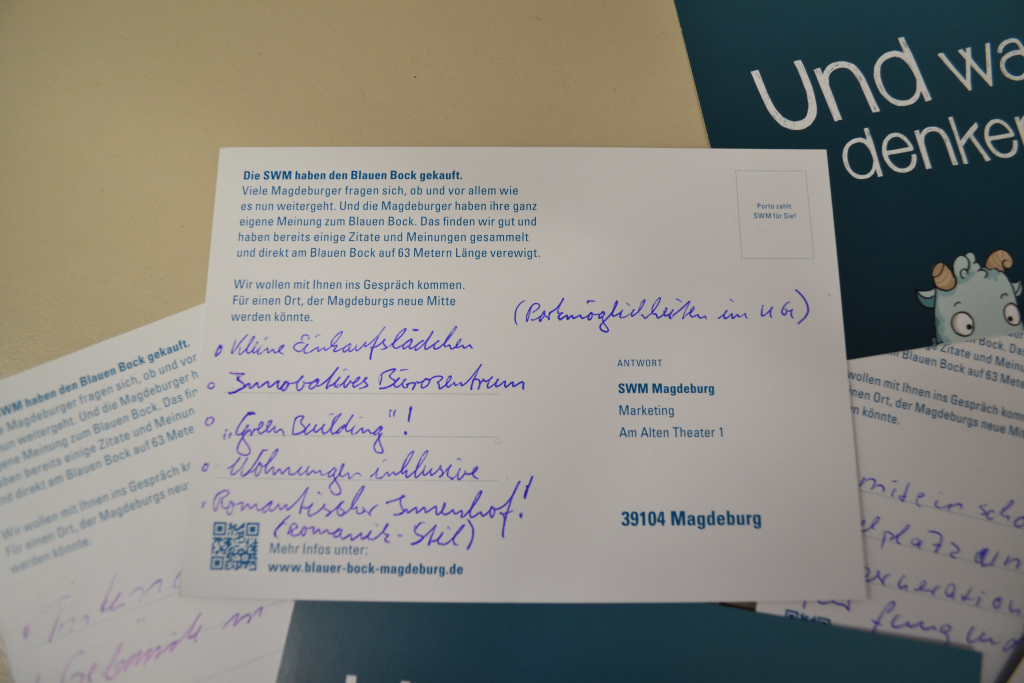 Und wa
denken
Die SWM haben den Blauen Bock gekauft.
Viele Magdeburger fragen sich, ob und vor allem wie
es nun weitergeht. Und die Magdeburger haben ihre ganz
eigene Meinung zum Blauen Bock. Das finden wir gut und
haben bereits einige Zitate und Meinungen gesammelt
und direkt am Blauen Bock auf 63 Metern Länge verewigt.
Wir wollen mit Ihnen ins Gespräch kommen.
Für einen Ort, der Magdeburgs neue Mitte
werden könnte.
Porto zahlt
SWM für Sie!
(Parkmöglichkeiten im UG)
• Kleine Einkaufslädchen
• Innovatives Bürozentrum
• „Green Building"!
• Wohnungen inklusive
• Romantischer Innenhof!
(Romanik-Stil)
Mehr Infos unter:
www.blauer-bock-magdeburg.de
ANTWORT
SWM Magdeburg
Marketing
Am Alten Theater 1
39104 Magdeburg
SWM haben den Blauen Bock gekauft.
Magdeburger fragen sich, ob und vor
nun weitergeht. Und die Magdeburger h
eigene Meinung zum Blauen Bock. Das fin
haben bereits einige Zitate und Meinungen
und direkt am Blauen Bock auf 63 Meter
Wir wollen mit Ihnen ins Gespräch k
Für einen Ort, der Magdeburgs neu
werden könnte.
Zitate und Meinungen
Blauen Bock auf 63 Metern
wollen mit Ihnen ins Gespräch komm
en Ort, der Magdeburgs neue Mi
könnte.
mitein
platz